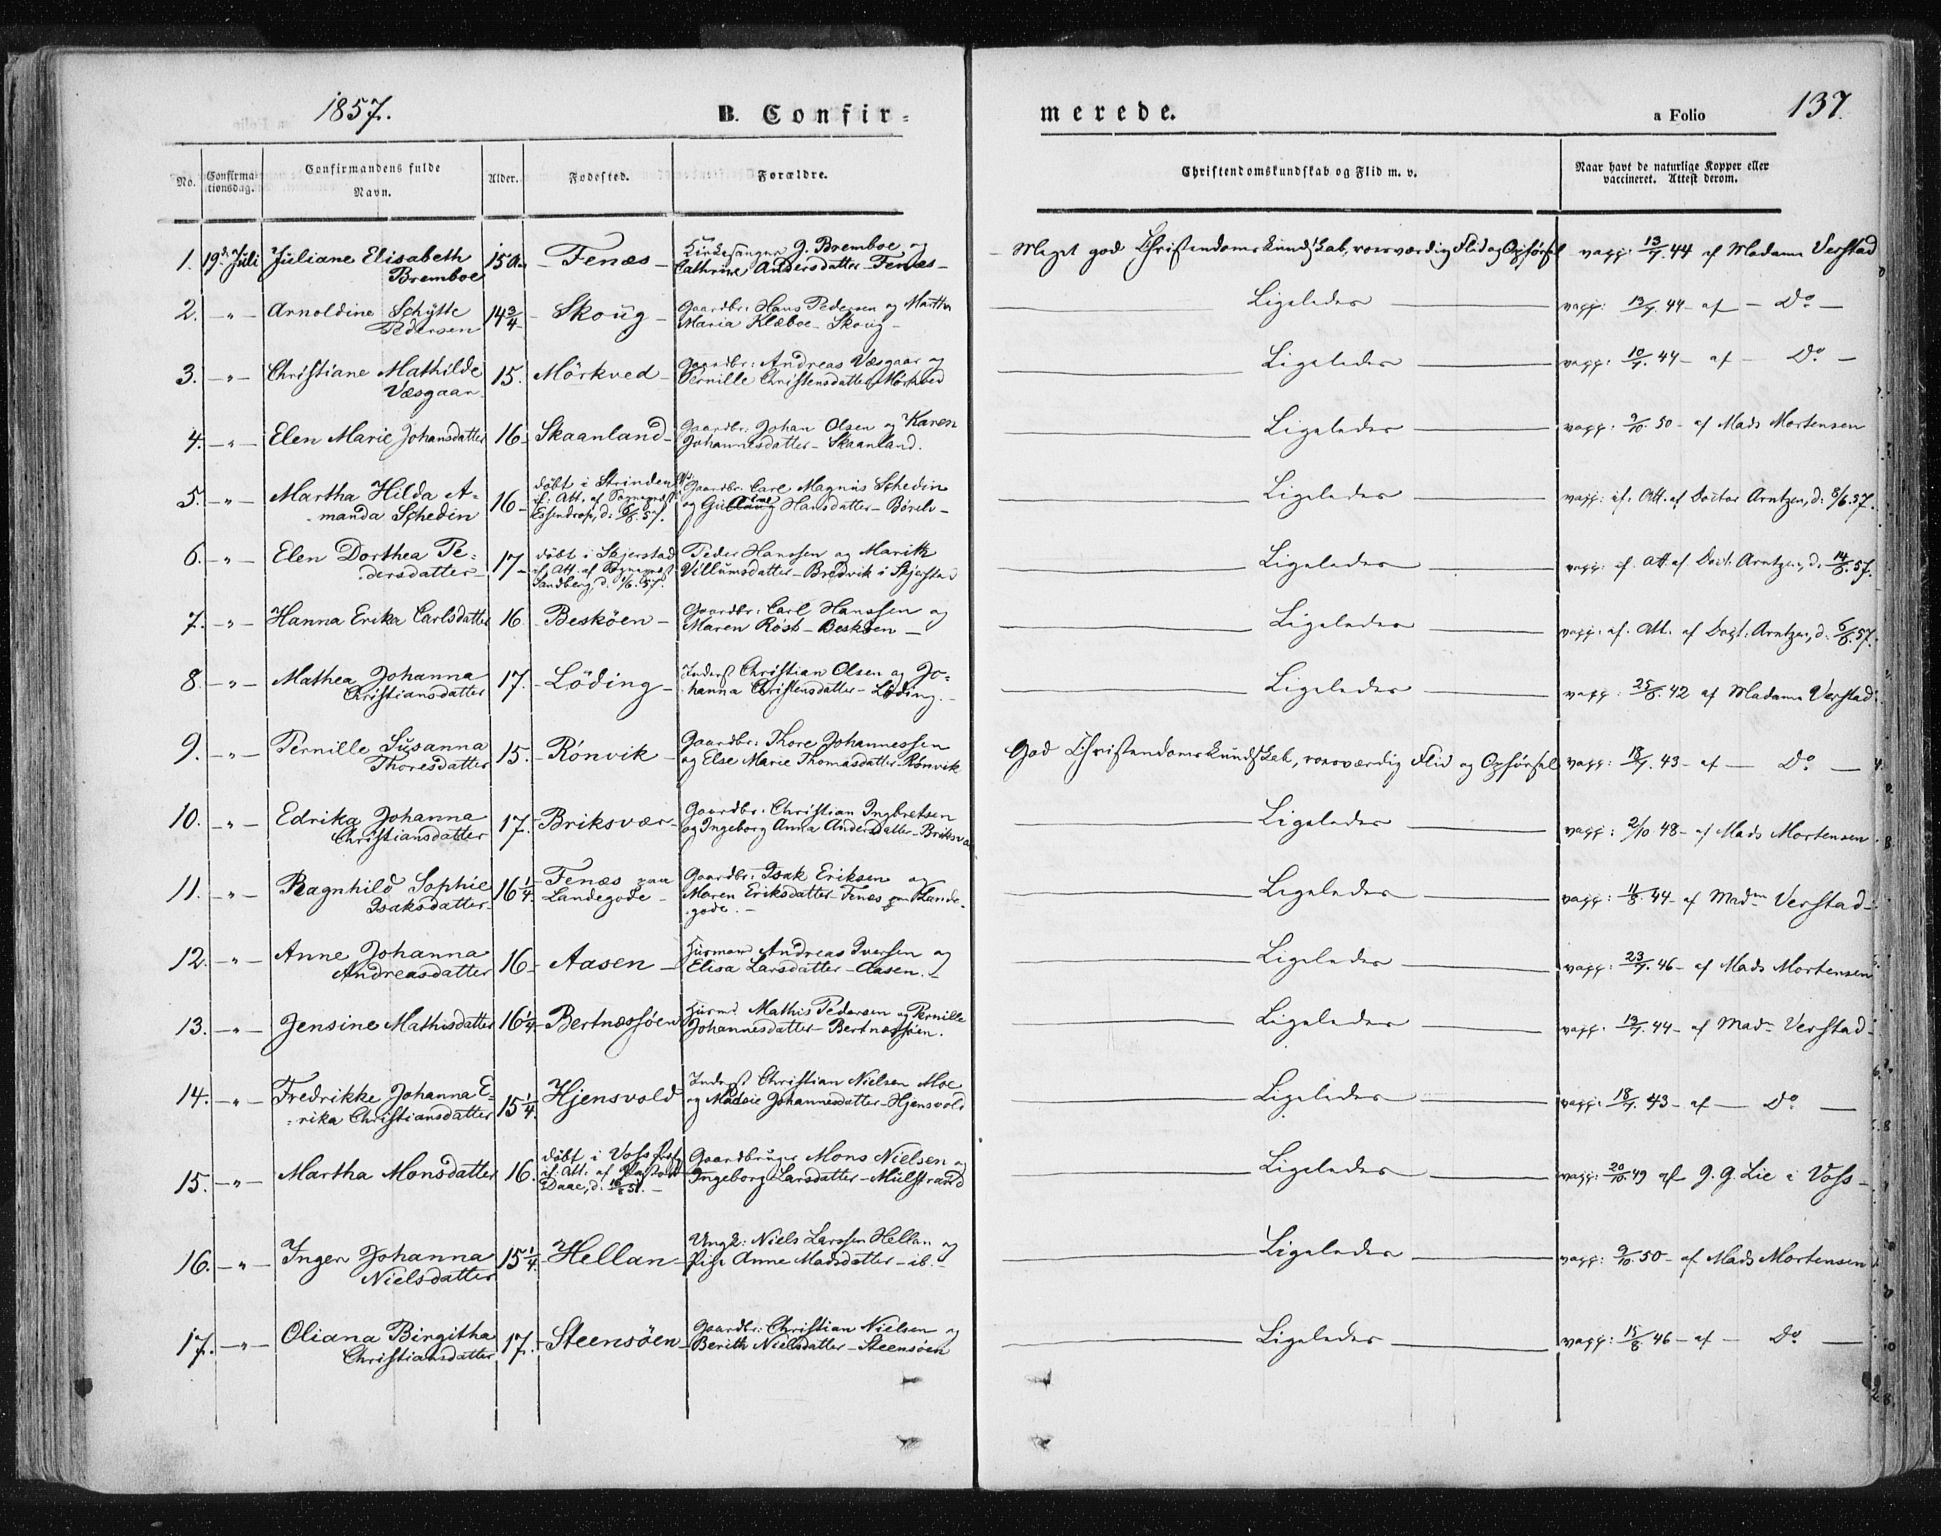 1857. B. Confir- merede. a Folio 137.
No. Confirmationsdag. Confirmandens fulde Navn. Alder. Fødested. Forældre. Christendomskundskab og Flid m. v. Naar havt de naturlige Kopper eller vaccineret. Attest derom.
1. 19d. Juli Juliane Elisabeth 15 Aar Fenæs Kirkesanger G. Bremboe og Meget god Christendomskundskab, roesværdig Flid og Opførsel vacc: 13/7. 44 af Madame Verstad
Bremboe Cathrine Andersdatter - Fenæs -
2. - " - Arnoldine Schytte 14 3/4 - Skoug - Gaardbr: Hans Pedersen og Martha Ligeledes vacc: 13/7. 44 - af - Do -
Pedersen Maria Klæboe - Skoug -
3. - " - Christiane Mathilde 15. Mörkved - Gaardbr: Andreas Væsgaar og Ligeledes vacc: 10/7. 44 - af - Do -
Væsgaar Pernille Christensdatter Mörkved
4. - " - Elen Marie Johansdatter 16 - Skaanland - Gaardbr: Johan Olsen og Karen Ligeledes vacc: 9/10. 50 - af Mads Mortensen
Johannesdatter - Skaanland.
5. - " - Martha Hilda A- 16 - döbt i Strinden Gaardbr: Carl Magnus Schedin Ligeledes vacc: if. Att. af Doctor Arntzen, d: 8/6. 37.
manda Schedin if: Att. af Sognepræst og Hansdatter - Börelv -
Essendrop, d: 57.
6. - " - Elen Dorthea Pe- 17 - döbt i Skjerstad Peder Hanssen og Marith Ligeledes vacc: if. Att. af Doct. Arntzen, d. 14/6. 57.
dersdatter - if. Att. af Sognepræst Villumsdatter - Bredvik i Skjerstad
Sandberg, d. 1/6. 57.
7. - " - Hanna Erika Carlsdatter 16 - Besköen - Gaardbr: Carl Hanssen og Ligeledes vacc: if. Att. af Doct. Arntzen, d. 6/6. 57.
Maren Röst - Besköen -
8 - " - Mathea Johanna 17. - Löding - Inderst Christian Olsen og Jo- Ligeledes vacc: 25/8. 42 af Madame Verstad.
Christiansdatter hanna Christensdatter - Löding. -
9. - " - Pernille Susanna 15. - Rönvik - Gaardbr: Thore Johannessen God Christendomskundskab, roesværdig Flid og Opførsel vacc: 18/7. 43 - af - Do -
Thoresdatter og Else Marie Thomasdatter Rönvik
10. - " - Edrika Johanna 17. - Briksvær - Gaardbr: Christian Ingbretsen Ligeledes vacc: 2/10. 48 - af Mads Mortensen
Christiansdatter og Ingeborg Anna Andersdatter - Briksvær
11. - " - Ragnhild Sophie 16 1/4 - Fenæs paa Gaardbr: Isak Eriksen og Ligeledes vacc: 11/8. 44 - af Madm Verstad -
Isaksdatter - Landegode - Maren Eriksdatter - Fenæs paa Lande-
gode. -
12. - " - Anne Johanna 16 - Aasen - Huusmand Andreas Iversen og Ligeledes vacc: 23/7. 46 - af Mads Mortensen
Andreasdatter Elisa Larsdatter - Aasen. -
13. - " - Jensine Mathisdatter 16 1/4 - Bertnæssöen Huusmd. Mathis Pedersen og Pernille Ligeledes vacc: 13/7. 44 - af Madm Verstad -
Johannesdatter - Bertnæssöen.
14. - " - Fredrikke Johanna E- 15 1/4. Hjensvold Inderst Christian Nielsen Moe Ligeledes vacc: 18/7. 43 - af - Do -
rika Christiansdatter og Johannesdatter - Hjensvold
15. - " - Martha Monsdatter 16. döbt i Voss Gaardbruger Mons Nielsen og Ligeledes vacc: 20/10. 49 af G. G. Lie i Voss -
if: Att. af Ingeborg Larsdatter - Mulstrand
Daae, d.
16. - " - Inger Johanna 15 1/4. - Hellan - Ungk: Niels Larssen Hellan og Ligeledes vacc: 9/10. 50 - af Mads Mortensen
Nielsdatter Pige Anne Madsdatter - ib. -
17. - " - Oliana Birgitha 17. - Steensöen - Gaardbr: Christian Nielsen og Ligeledes vacc: 15/8. 46 - af - Do -
Christiansdatter Berith Nielsdatter - Steensöen